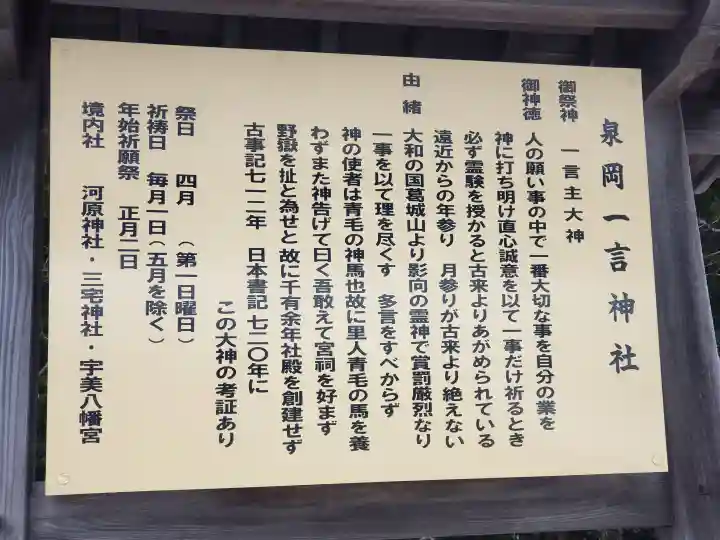 泉岡一言神社
御祭神 一言主大神
御神徳 人の願い事の中で一番大切な事を自分の業を
神に打ち明け直心誠意を以て一事だけ祈るとき
必ず霊験を授かると古来よりあがめられている
遠近からの年参り 月参りが古来より絶えない
由緒 大和の国葛城山より影向の霊神で賞罰厳烈なり
一事を以て理を尽くす 多言をすべからず
神の使者は青毛の神馬也故に里人青毛の馬を養
わずまた神告げて曰く吾敢えて宮祠を好まず
野嶽を扯と為せと故に千有余年社殿を創建せず
古事記七一二年 日本書記七二〇年に
この大神の考証あり
祭日 四月 (第一日曜日)
祈祷日 毎月一日(五月を除く)
年始祈願祭 正月二日
境内社 河原神社・三宅神社・宇美八幡宮